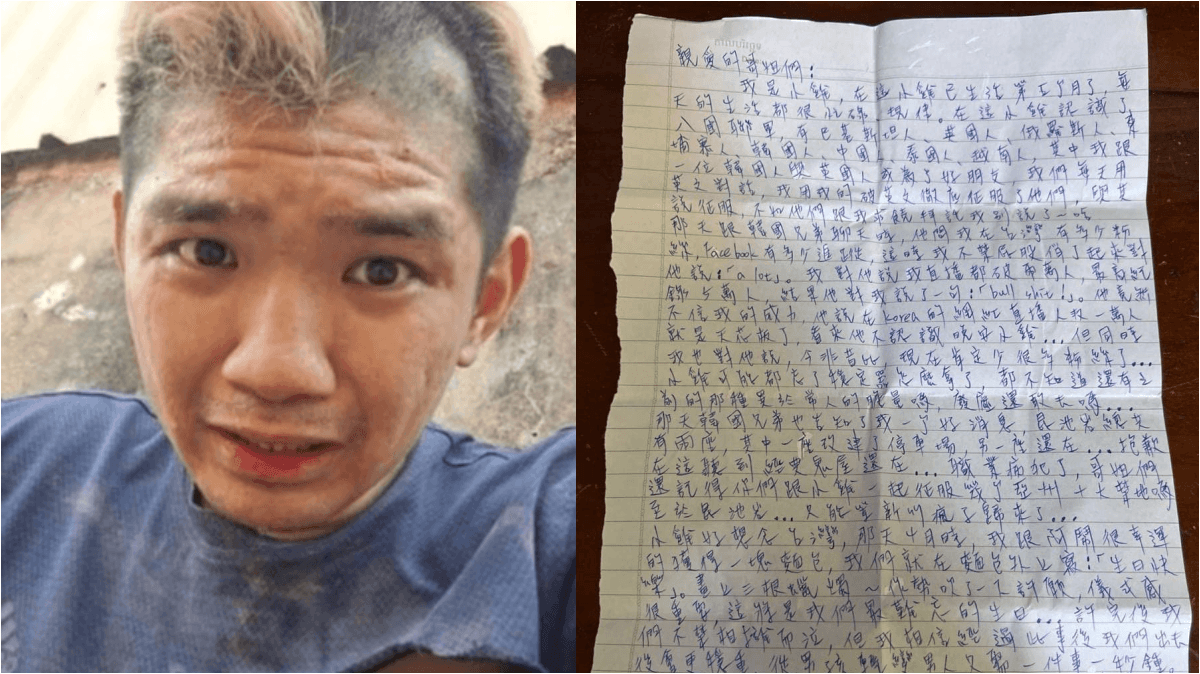 親愛的哥姐們：
我是小雞，在這小雞已生活第三個月了，每
天的生活都很忙碌、規律。在這小雞認識了
八國聯軍，有巴基斯坦人、英國人、俄羅斯人、柬
埔寨人、韓國、中國、泰國人、越南人，其中我跟
一位韓國人與英國人成為了好朋友，我們每天用
英文對話，我用我的破英文徹底征服了他們，與其
說征服，不如他們跟我求饒拜託我別說了...哈
那天跟韓國兄弟聊天時，他問我在台灣有多少粉
絲，Facebook有多少追蹤，這時我不禁屁股了起來對
他說：「a lot」。我對他說我直播都破兩萬人，最高紀
錄六萬人，結果他對我說了一句：「bull shit！」。他竟然
不信我的威力，他說在korea的網紅直播人數一萬人
就是天花板了，看來他不認識晚安小雞...但同時
我也對他說，今非昔比，現在肯定少很多粉絲了...
小雞可能都忘了穩定器怎麼拿了，都不知道還有之
前的那種異於常人的膽量嗎，廢墟還敢去嗎...
那天韓國兄弟也告知了我一個好消息，昆池岩總共
有兩座，其中一座改建了停車場，另一座還在...抱歉
在這聽到經典鬼屋還在...職業病犯了，哥姐們
還記得你們跟小雞一起征服幾個亞洲十大禁地嗎
至於昆池岩...只能等新的瘋子歸來了...
小雞好想念台灣，那天4月時，我跟阿鬧很幸運
的獲得一塊麵包，我們就在麵包外上寫：「生日快
樂」。畫上三根蠟燭～作勢吹了一下許願，儀式感
很重要，這將是我們最難忘的生日...許完後我
們不禁相擁而泣，但我相信經過此事後我們出去
後會更穩重，從男孩轉變男人只需一件事一秒鐘。